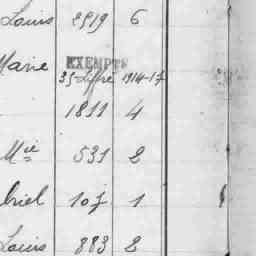 Louis 8519 6
Marie EXEMPTE
35 Liffré 1914-17
1811 4
Mie 531 2
briel 107 1
Louis 883 2